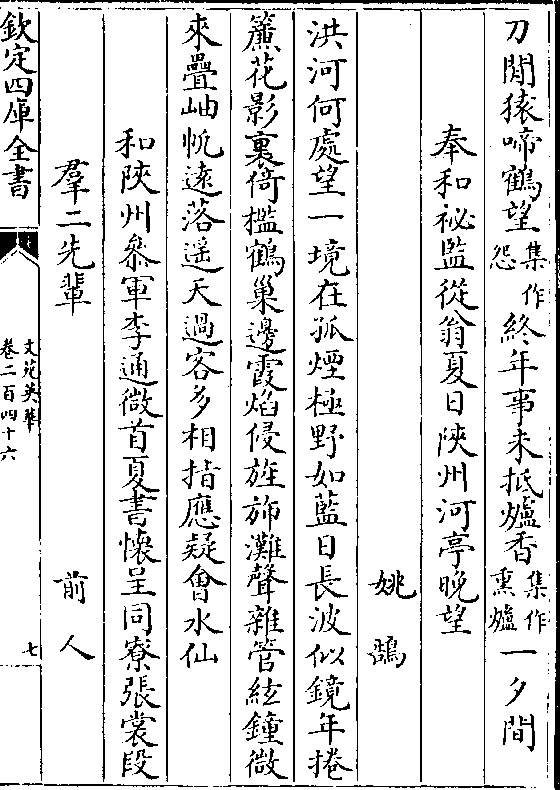 刀閒猿啼鶴望集作怨終年事未抵爐香集作熏爐一夕間
奉和祕監從翁夏日陜州河亭晚望
姚鵠
洪河何處望一境在孤煙極野如藍日長波似鏡年捲
簾花影裏倚檻鶴巢邊霞焰侵旌旆灘聲雜管絃鐘微
來疊岫帆遠落遥天過客多相指應疑會水仙
和陜州叅軍李通微首夏書懷呈同寮張裳段
羣二先輩 前人
欽定四庫全書
文苑英華
卷二百四十六
七